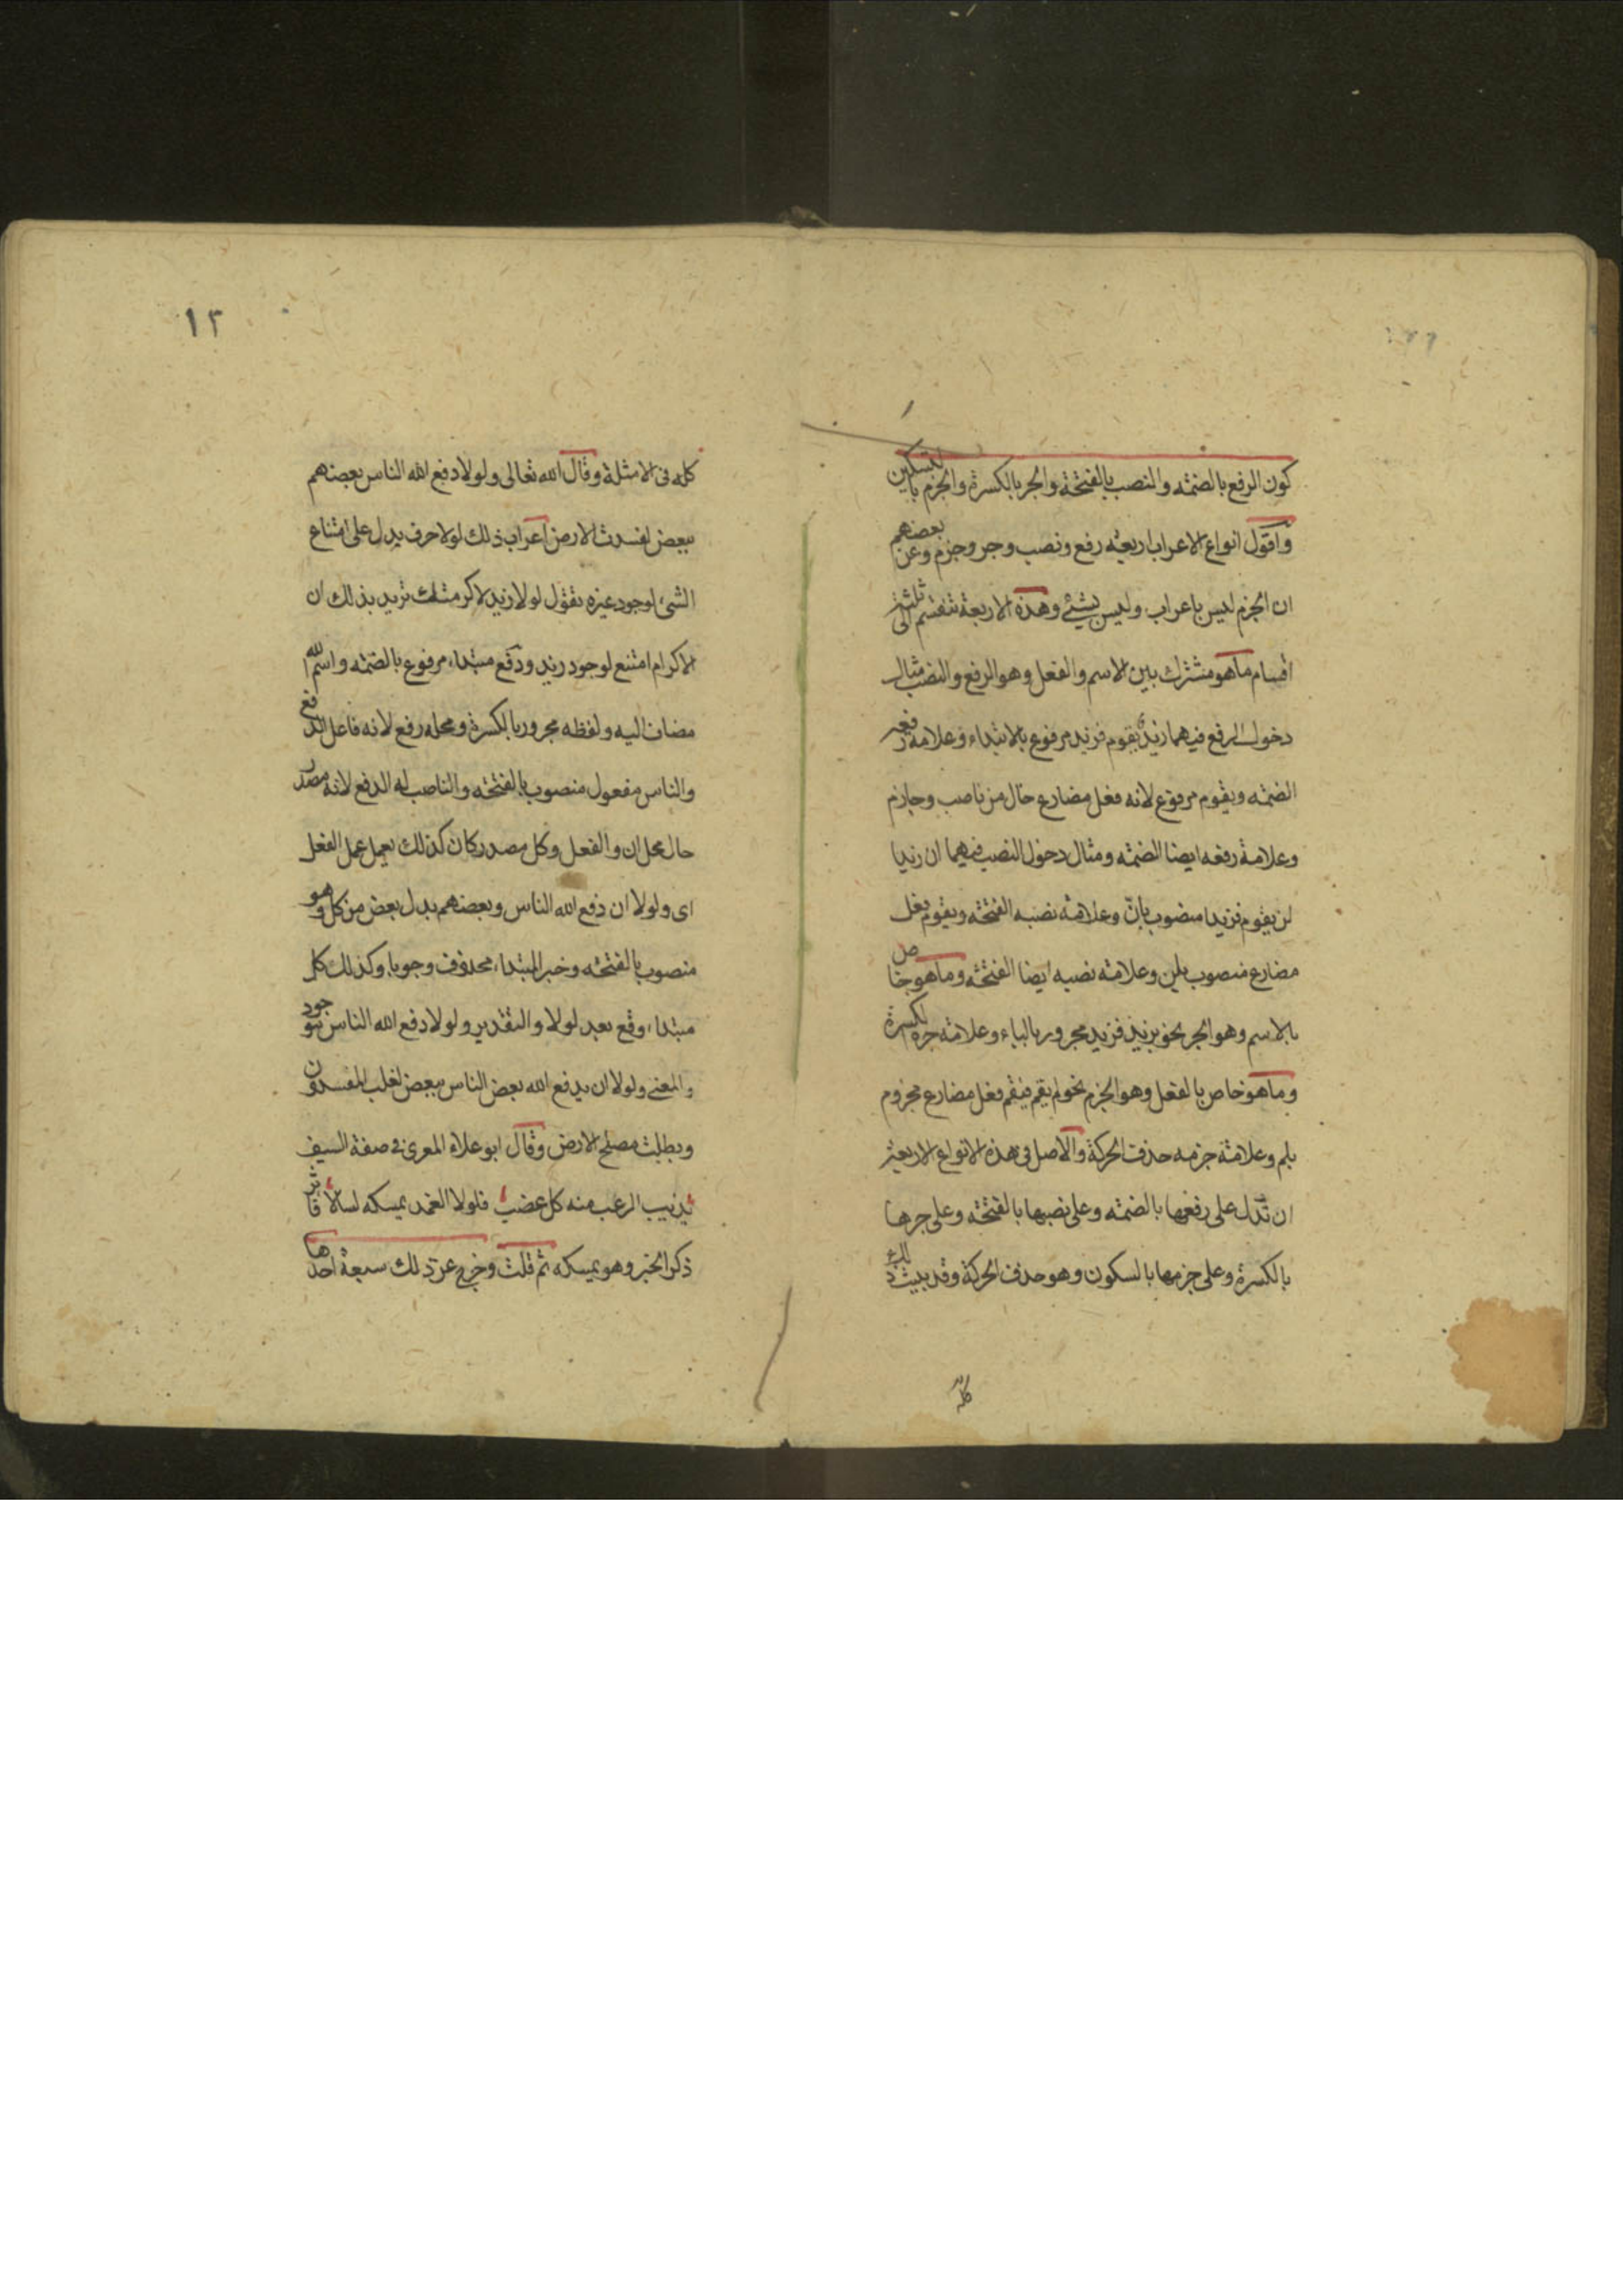 كون الرفع بالضمه والنصب بالفتحة والجر بالكسرة والجزم بالتسكين
واقول انواع الاعراب اربعة رفع ونصب وجر وجزم وعن بعضهم
ان الجزم ليس باعراب وليس بشئ وهذه الاربعة تنقسم الى ثلثة
اقسام ماهو مشترك بين الاسم والفعل وهو الرفع والنصب مثال
دخول الرفع فيهما زيد يقوم فزيد مرفوع بالابتداء وعلامة رفعه
الضمه ويقوم مرفوع لانه فعل مضارع خال من ناصب وجازم
وعلامة رفعه ايضا الضمه ومثال دخول النصب فيهما ان زيدا
لن يقوم فزيدا منصوب بان وعلامة نصبه الفتحة ويقوم فعل
مضارع منصوب بلن وعلامة نصبه ايضا الفتحة وماهو خاص
بالاسم وهو الجر نحو بزيد فزيد مجرور بالباء وعلامة جره الكسرة
وماهو خاص بالفعل وهو الجزم نحو لم يقم فيقم فعل مضارع مجزوم
بلم وعلامة جزمه حذف الحركة والاصل فى هذه الانواع الاربعة
ان تدل على رفعها بالضمه وعلى نصبها بالفتحة وعلى جرها
بالكسرة وعلى جزمها بالسكون وهو حذف الحركة وقد بينت ذلك
كله
١٢
كله فى الامثلة وقال الله تعالى ولولا دفع الله الناس بعضهم
ببعض لفسدت الارض اعراب ذلك لولا حرف يدل على امتناع
الشئ لوجود غيره تقول لولا زيد لاكرمتك تريد بذلك ان
الاكرام امتنع لوجود زيد ودفع مبتداء مرفوع بالضمه واسم الله
مضاف اليه ولفظه مجرور بالكسرة ومحله رفع لانه فاعل الدفع
والناس مفعول منصوب بالفتحة والناصب له الدفع لانه مصدر
حال محل ان والفعل وكل مصدر كان كذلك يعمل عمل الفعل
اى ولولا ان دفع الله الناس وبعضهم بدل بعض من كل وهو
منصوب بالفتحة وخبر المبتداء محذوف وجوبا وكذلك كل
مبتداء وقع بعد لولا والتقدير ولولا دفع الله الناس موجود
والمعنى ولولا ان يدفع الله بعض الناس ببعض لغلب المفسدون
وبطلت مصلح الارض وقال ابو علاء المعرى فى صفة السيف
يذيب الرعب منه كل عضب فلولا الغمد يمسكه لسالا
ذكر الخبر وهو يمسكه ثم قلت وخرج عن ذلك سبعة احدها